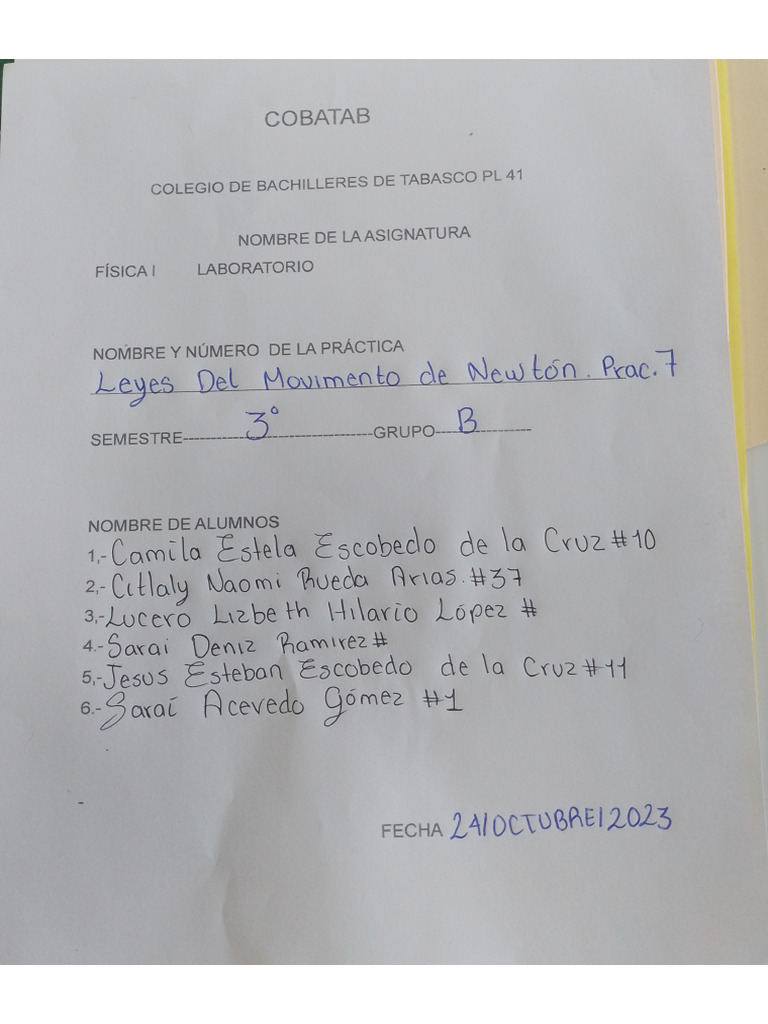 COBATAB
COLEGIO DE BACHILLERES DE TABASCO PL 41
NOMBRE DE LA ASIGNATURA
FÍSICA I LABORATORIO
NOMBRE Y NÚMERO DE LA PRÁCTICA
Leyes Del Movimento de Newtón. Prac. 7
SEMESTRE-----3°-----GRUPO-----B-----
NOMBRE DE ALUMNOS
1,- Camila Estela Escobedo de la Cruz #10
2,- Citlaly Naomi Rueda Arias. #37
3,- Lucero Lizbeth Hilario López #
4.- Sarai Deniz Ramirez #
5,- Jesus Esteban Escobedo de la Cruz #11
6.- Saraí Acevedo Gómez #1
FECHA 24/OCTUBRE/2023